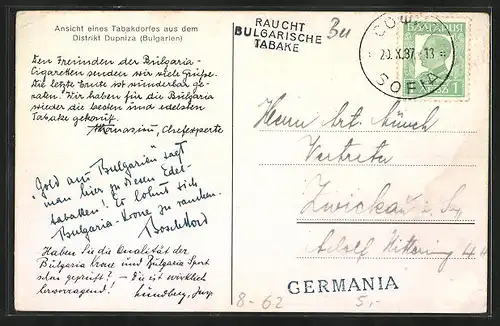 Ansicht eines Tabakdorfes aus dem
Distrikt Dupniza (Bulgarien)
Den Freunden der Bulgaria-
Cigaretten senden wir viele Grüße.
Die letzte Ernte ist wunderbar ge-
raten! Wir haben für die Bulgaria
wieder die besten und edelsten
Tabake gekauft.
Athanasiu, Chefexperte
"Gold aus Bulgarien" sagt
man hier zu diesen Edel-
tabaken! Es lohnt sich
Bulgaria-Krone zu rauchen.
Haben Sie die Qualität der
Bulgaria Krone und Bulgaria Sport
schon geprüft? - Die ist wirklich
hervorragend!
Lundberg, Insp.
RAUCHT
BULGARISCHE
TABAKE
SOFIA
20.X.37.-13
БЪЛГАРИЯ
1
Herrn Art. Münch
Vertreter
Zwickau i. Sa.
Adolf Hitlerring 44
GERMANIA
8-62
5,-